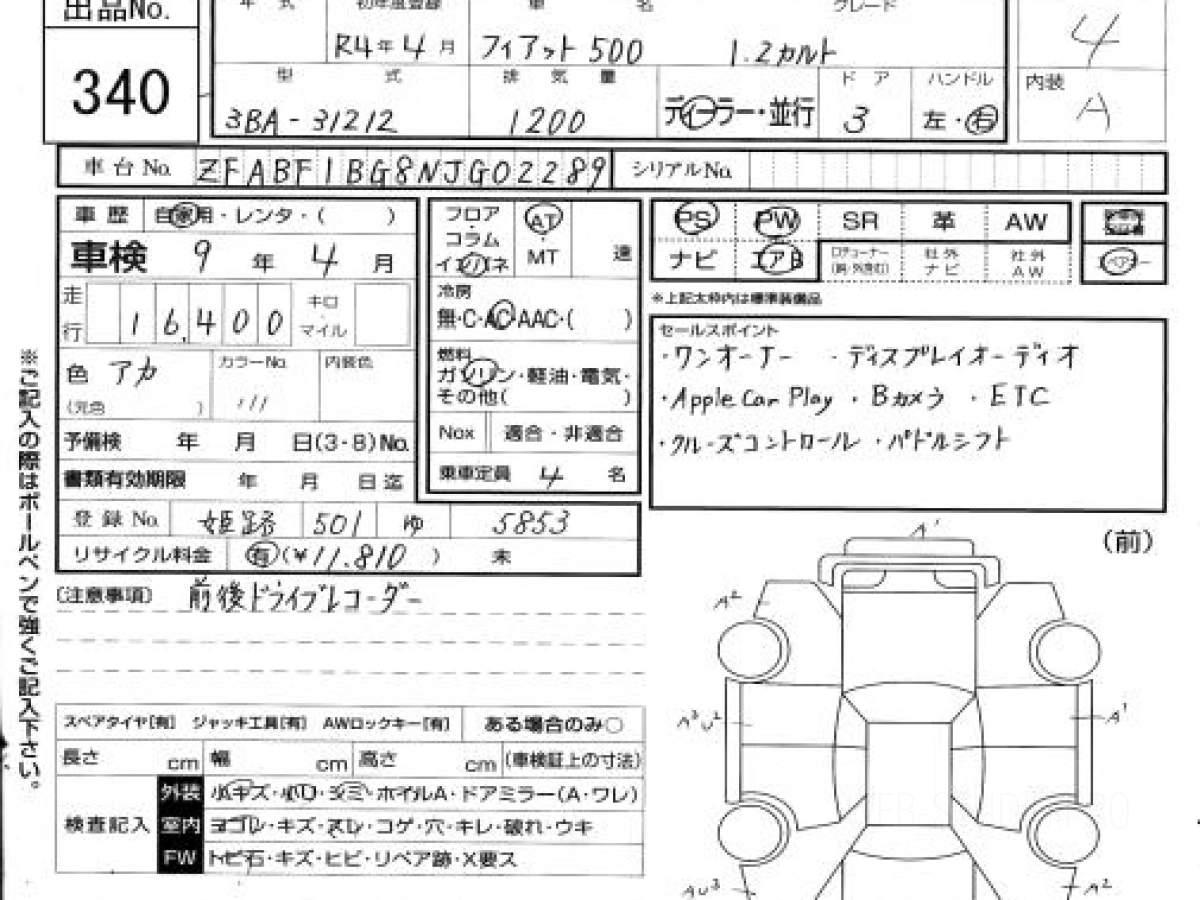 出品No.
340
年 式
初年度登録
車 名
グレード
R4年4月
フィアット 500
1.2カルト
4
型 式
排 気 量
ド ア
ハンドル
内装
3BA-31212
1200
ディーラー・並行
3
左・右
A
車台No. ZFABF1BG8NJG02289
シリアルNo.
車 歴 自家用・レンタ・( )
車検 9年4月
走行 16,400 キロ・マイル
色 アカ
(元色 )
カラーNo.
111
内装色
予備検 年 月 日(3・8)No.
書類有効期限 年 月 日迄
登録No. 姫路 501 ゆ 5853
リサイクル料金 有(¥11.810) 未
フロア
コラム
インパネ
AT
・
MT
速
冷房
無・C・AC・AAC・( )
燃料
ガソリン・軽油・電気・
その他( )
Nox 適合・非適合
乗車定員 4 名
PS PW SR 革 AW
ナビ エアB
社外ナビ 社外AW
※上記太枠内は標準装備品
セールスポイント
・ワンオーナー ・ディスプレイオーディオ
・Apple Car Play ・Bカメラ ・ETC
・クルーズコントロール ・パドルシフト
(注意事項) 前後ドライブレコーダー
※ご記入の際はボールペンで強くご記入下さい。
スペアタイヤ[有] ジャッキ工具[有] AWロックキー[有] ある場合のみ○
長さ cm 幅 cm 高さ cm (車検証上の寸法)
検査記入
外装 小キズ・小凹・シミ・ホイルA・ドアミラー(A・ワレ)
室内 ヨゴレ・キズ・スレ・コゲ・穴・キレ・破れ・ウキ
FW トビ石・キズ・ヒビ・リペア跡・X要ス
(前)
A1
A2
A3 U2
A1
AU3
A2